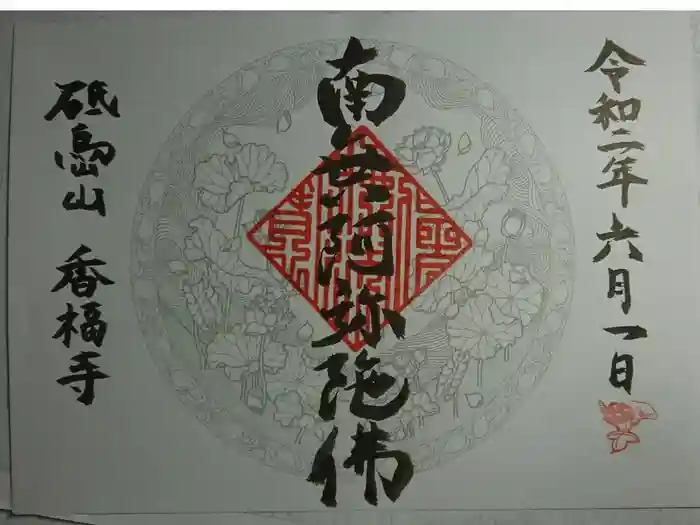 令和二年六月一日
南無阿弥陀佛
砥嶋山 香福寺